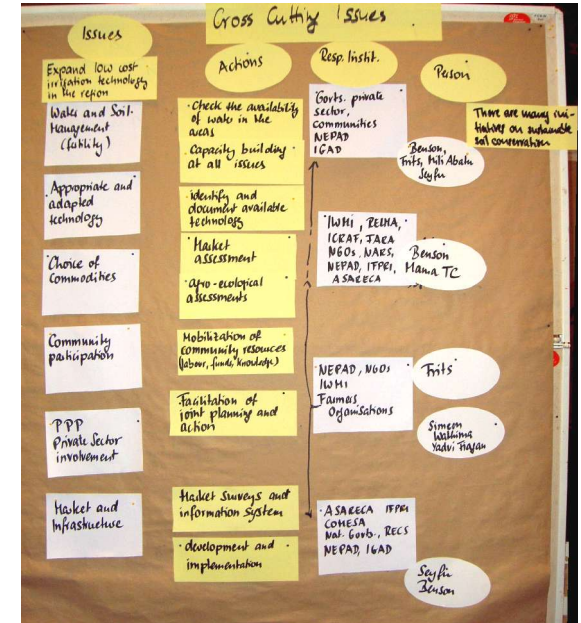 Cross Cutting Issues
Issues
Actions
Resp. Instit.
Person
Expand low cost
irrigation technology
in the region
Water and Soil
Management
(fertility)
Appropriate and
adapted
technology
Choice of
Commodities
Community
participation
PPP
Private Sector
involvement
Market and
Infrastructure
· Check the availability
of water in the
areas
· Capacity building
at all issues
· identify and
document available
technology
Market
assessment
· agro-ecological
assessments
Mobilization of
community resources
(labour, funds, knowledge)
Facilitation of
joint planning and
action
Market surveys and
information system
· development and
implementation
Govts. private
sector,
communities
NEPAD
IGAD
IWMI, RELMA,
ICRAF,
NGOs, NARS,
NEPAD, IFPRI,
ASARECA
NEPAD, NGOs
IWMI
Farmers
Organisations
· ASARECA IFPRI
COMESA
Nat. Govts., RECS
NEPAD, IGAD
Benson,
Frits,
Seyfu
Benson
Mama TC
Frits
Simeon
Seyfu
Benson
There are many ini-
tiatives on sustainable
soil conservation